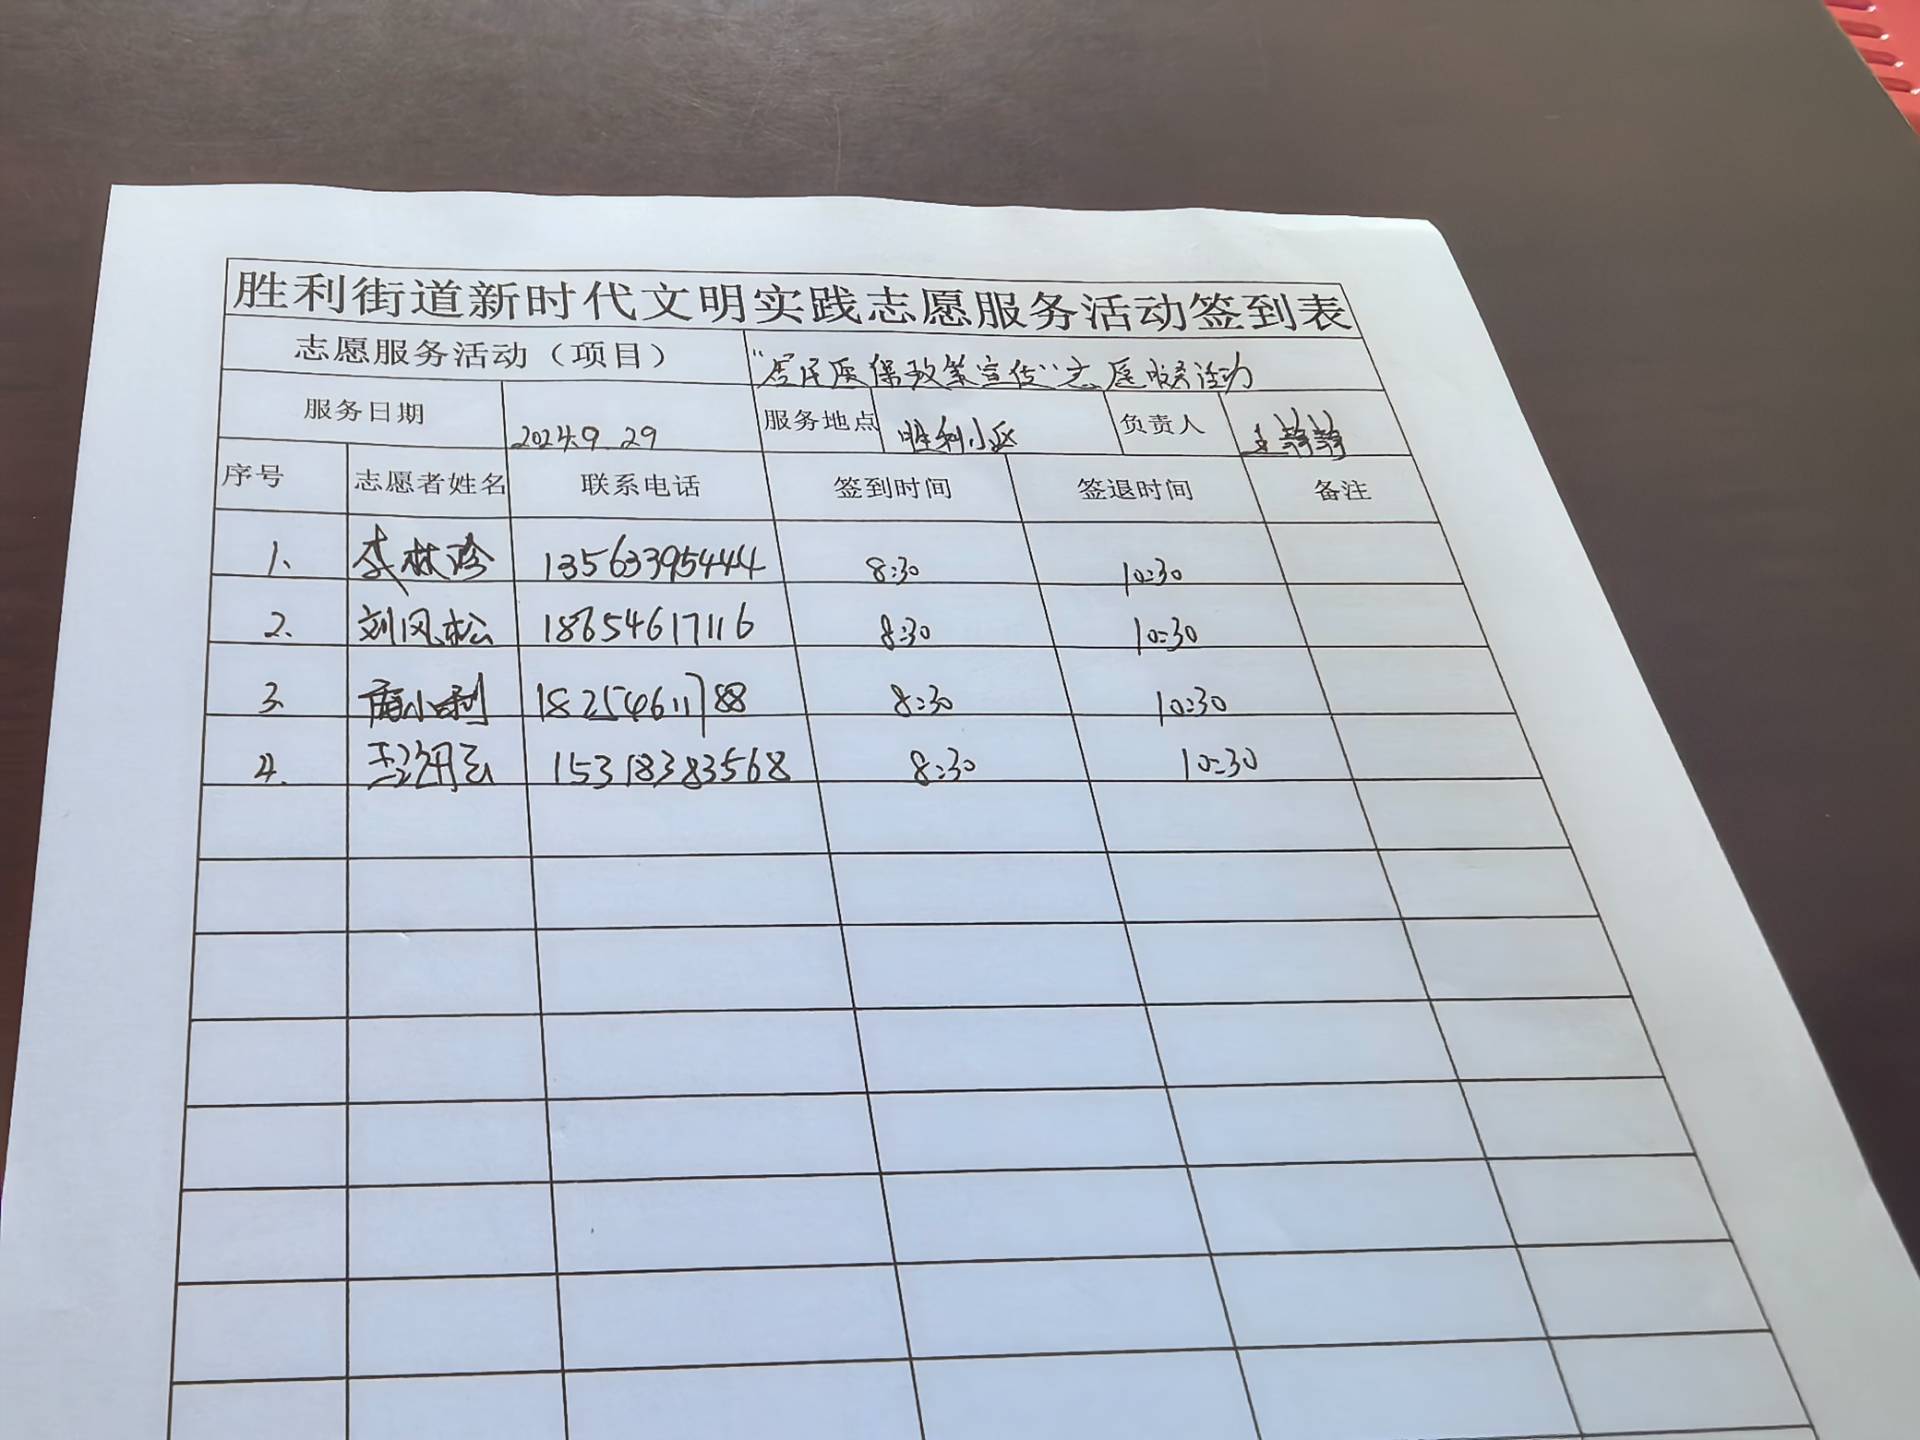 胜利街道新时代文明实践志愿服务活动签到表
志愿服务活动（项目） “居民医保政策宣传”志愿服务活动
服务日期 2024.9.29 服务地点 胜利小区 负责人
序号 志愿者姓名 联系电话 签到时间 签退时间 备注
1、 李林珍 13563395444 8:30 10:30
2、 刘风松 18654617116 8:30 10:30
3、 18254611788 8:30 10:30
4、 15318383568 8:30 10:30